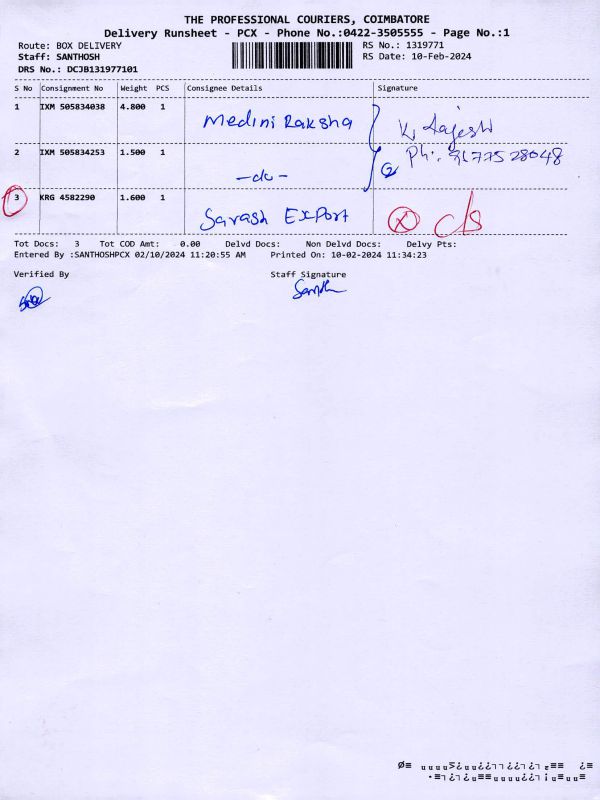 THE PROFESSIONAL COURIERS, COIMBATORE
Delivery Runsheet - PCX - Phone No.:0422-3505555 - Page No.:1
Route: BOX DELIVERY RS No.: 1319771
Staff: SANTHOSH RS Date: 10-Feb-2024
DRS No.: DCJB131977101
S No Consignment No Weight PCS Consignee Details Signature
1 IXM 505834038 4.800 1 Medini Raksha K. Rajesh
2 IXM 505834253 1.500 1 -do- 2 Ph:
3 KRG 4582290 1.600 1 Sarash Export X
Tot Docs: 3 Tot COD Amt: 0.00 Delvd Docs: Non Delvd Docs: Delvy Pts:
Entered By :SANTHOSHPCX 02/10/2024 11:20:55 AM Printed On: 10-02-2024 11:34:23
Verified By Staff Signature